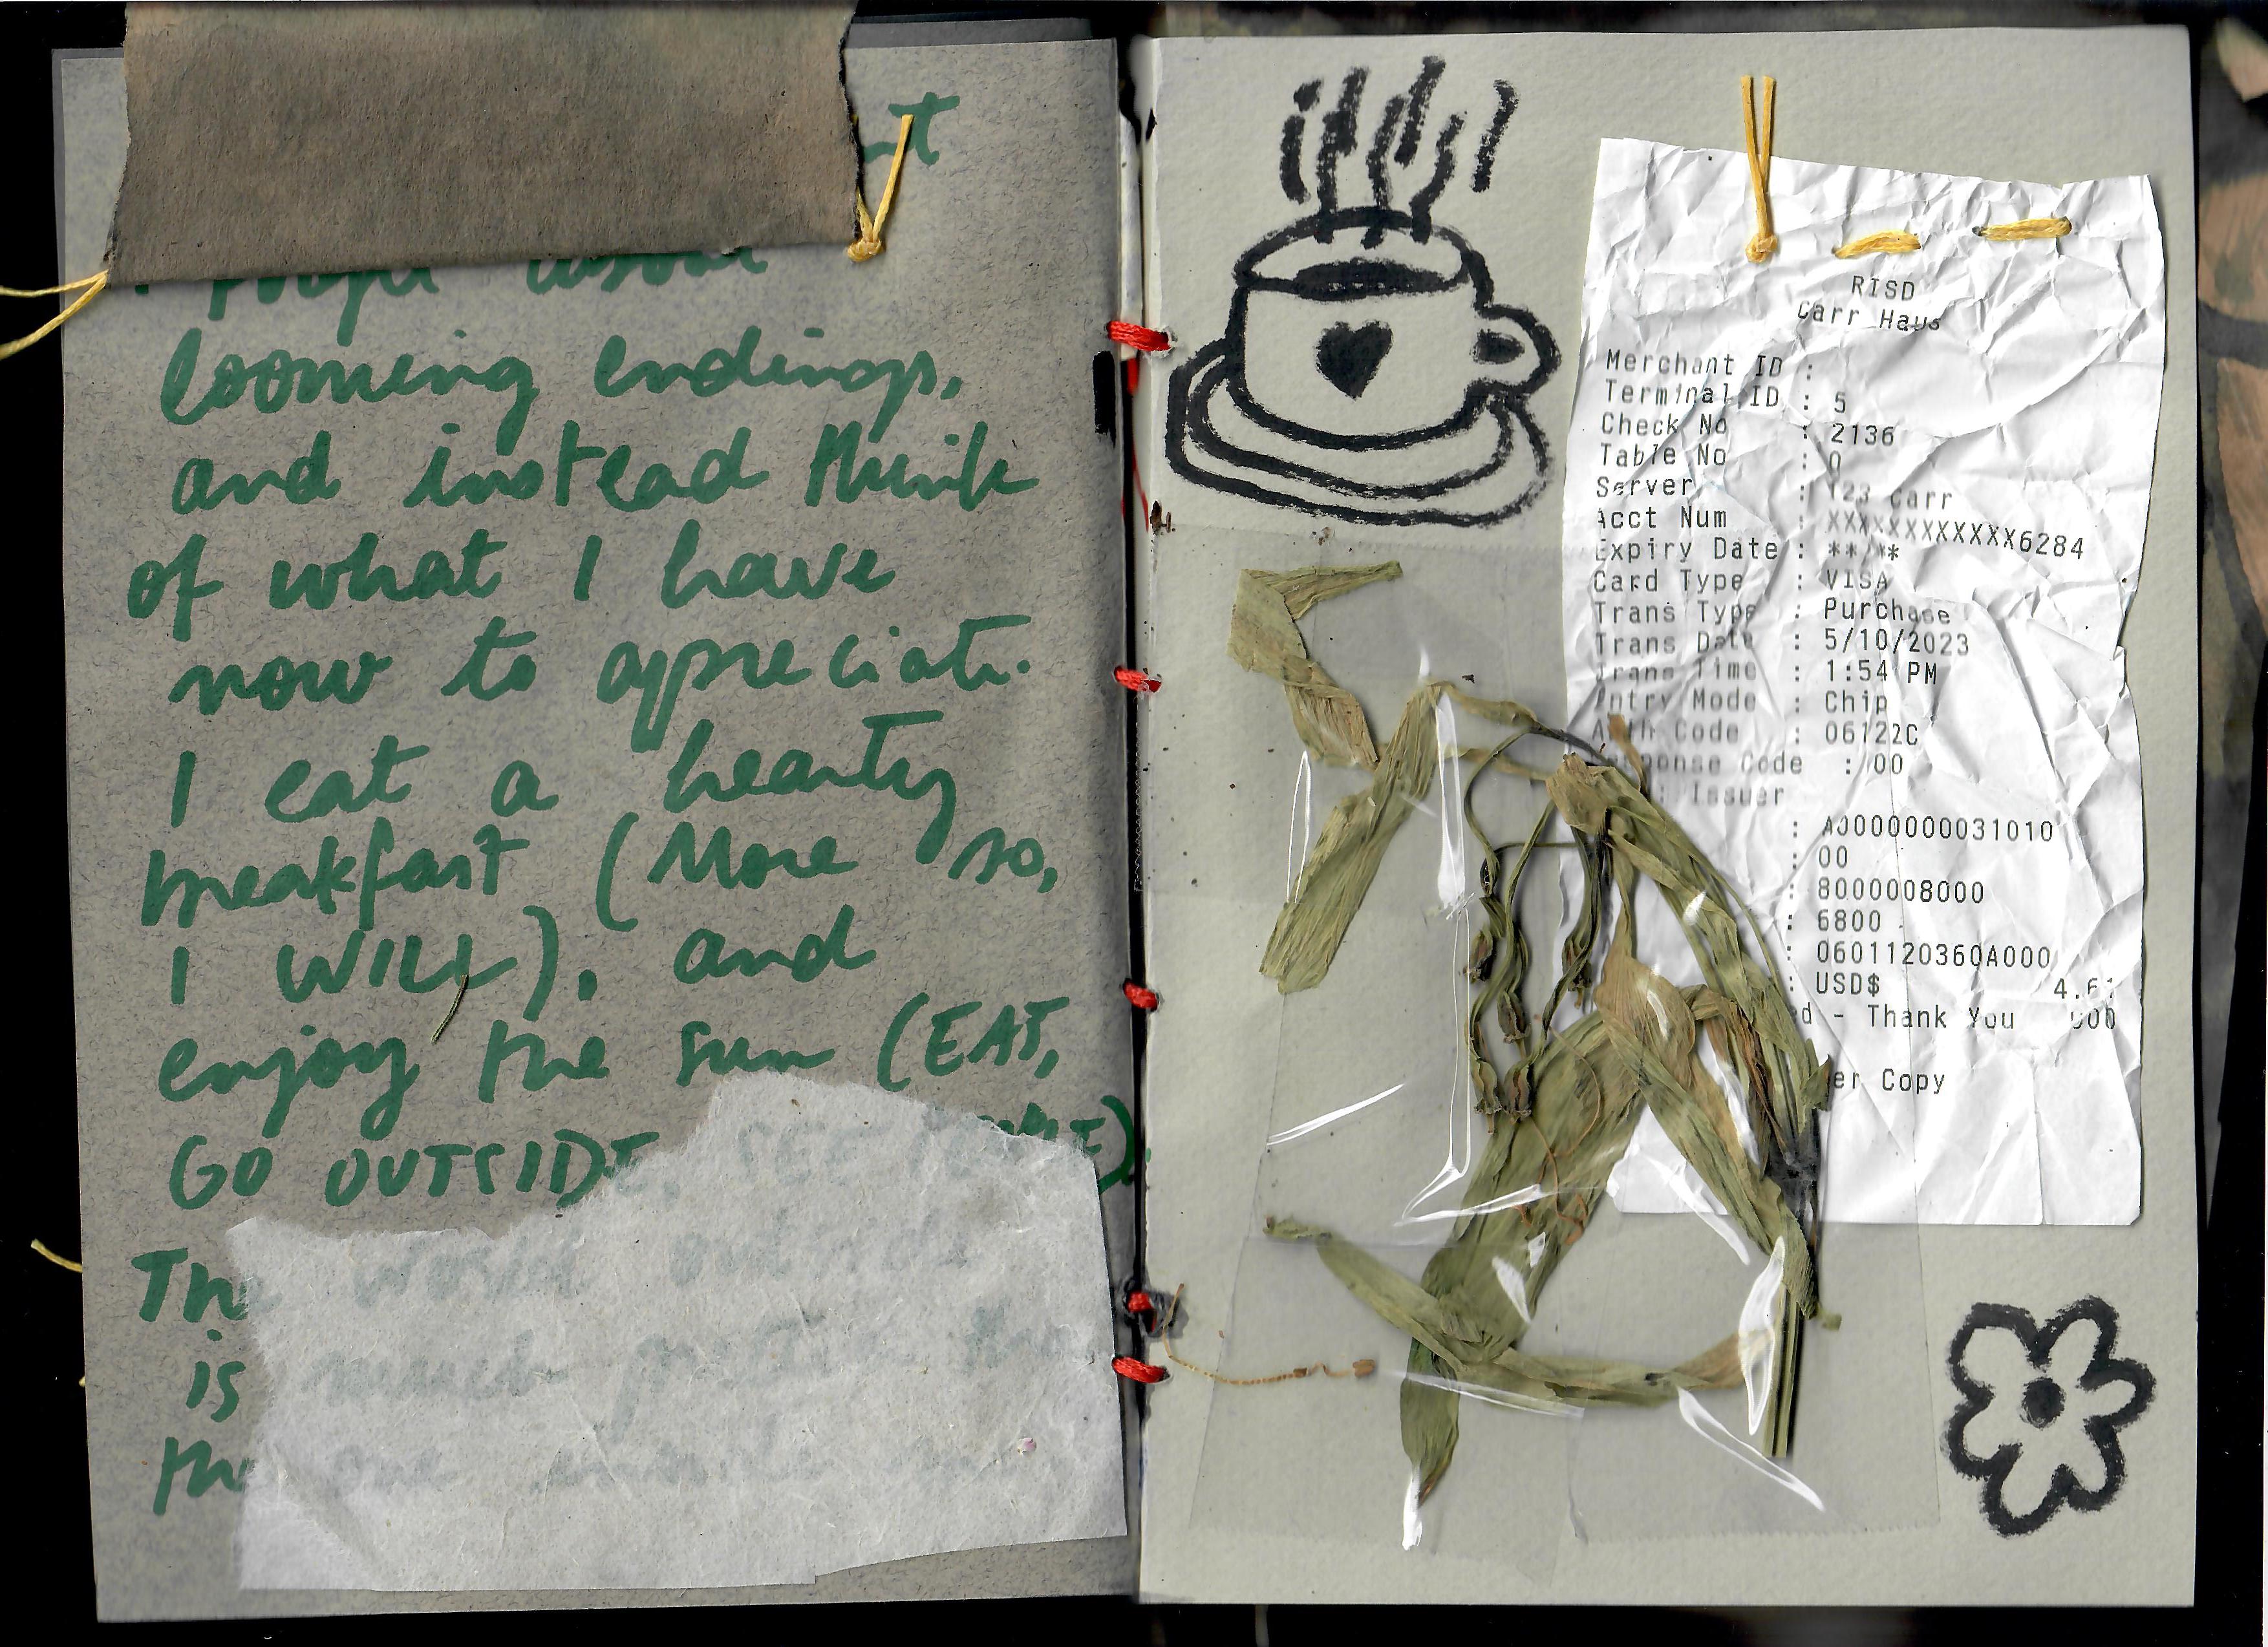 I forget about
looming endings,
and instead think
of what I have
now to apreciate.
I eat a hearty
breakfast (More so,
I WILL), and
enjoy the sun (EAT,
GO OUTSIDE, SEE PEOPLE).
The world outside
is much prettier than
the one inside
RISD
Carr Haus
Merchant ID :
Terminal ID : 5
Check No : 2136
Table No : 0
Server : 123 Carr
Acct Num : XXXXXXXXXXXX6284
Expiry Date : **/**
Card Type : VISA
Trans Type : Purchase
Trans Date : 5/10/2023
Trans Time : 1:54 PM
Entry Mode : Chip
Auth Code : 06122C
Response Code : 00
Issuer
: A0000000031010
: 00
: 8000008000
: 6800
: 0601120360A000
: USD$ 4.61
- Thank You
Copy